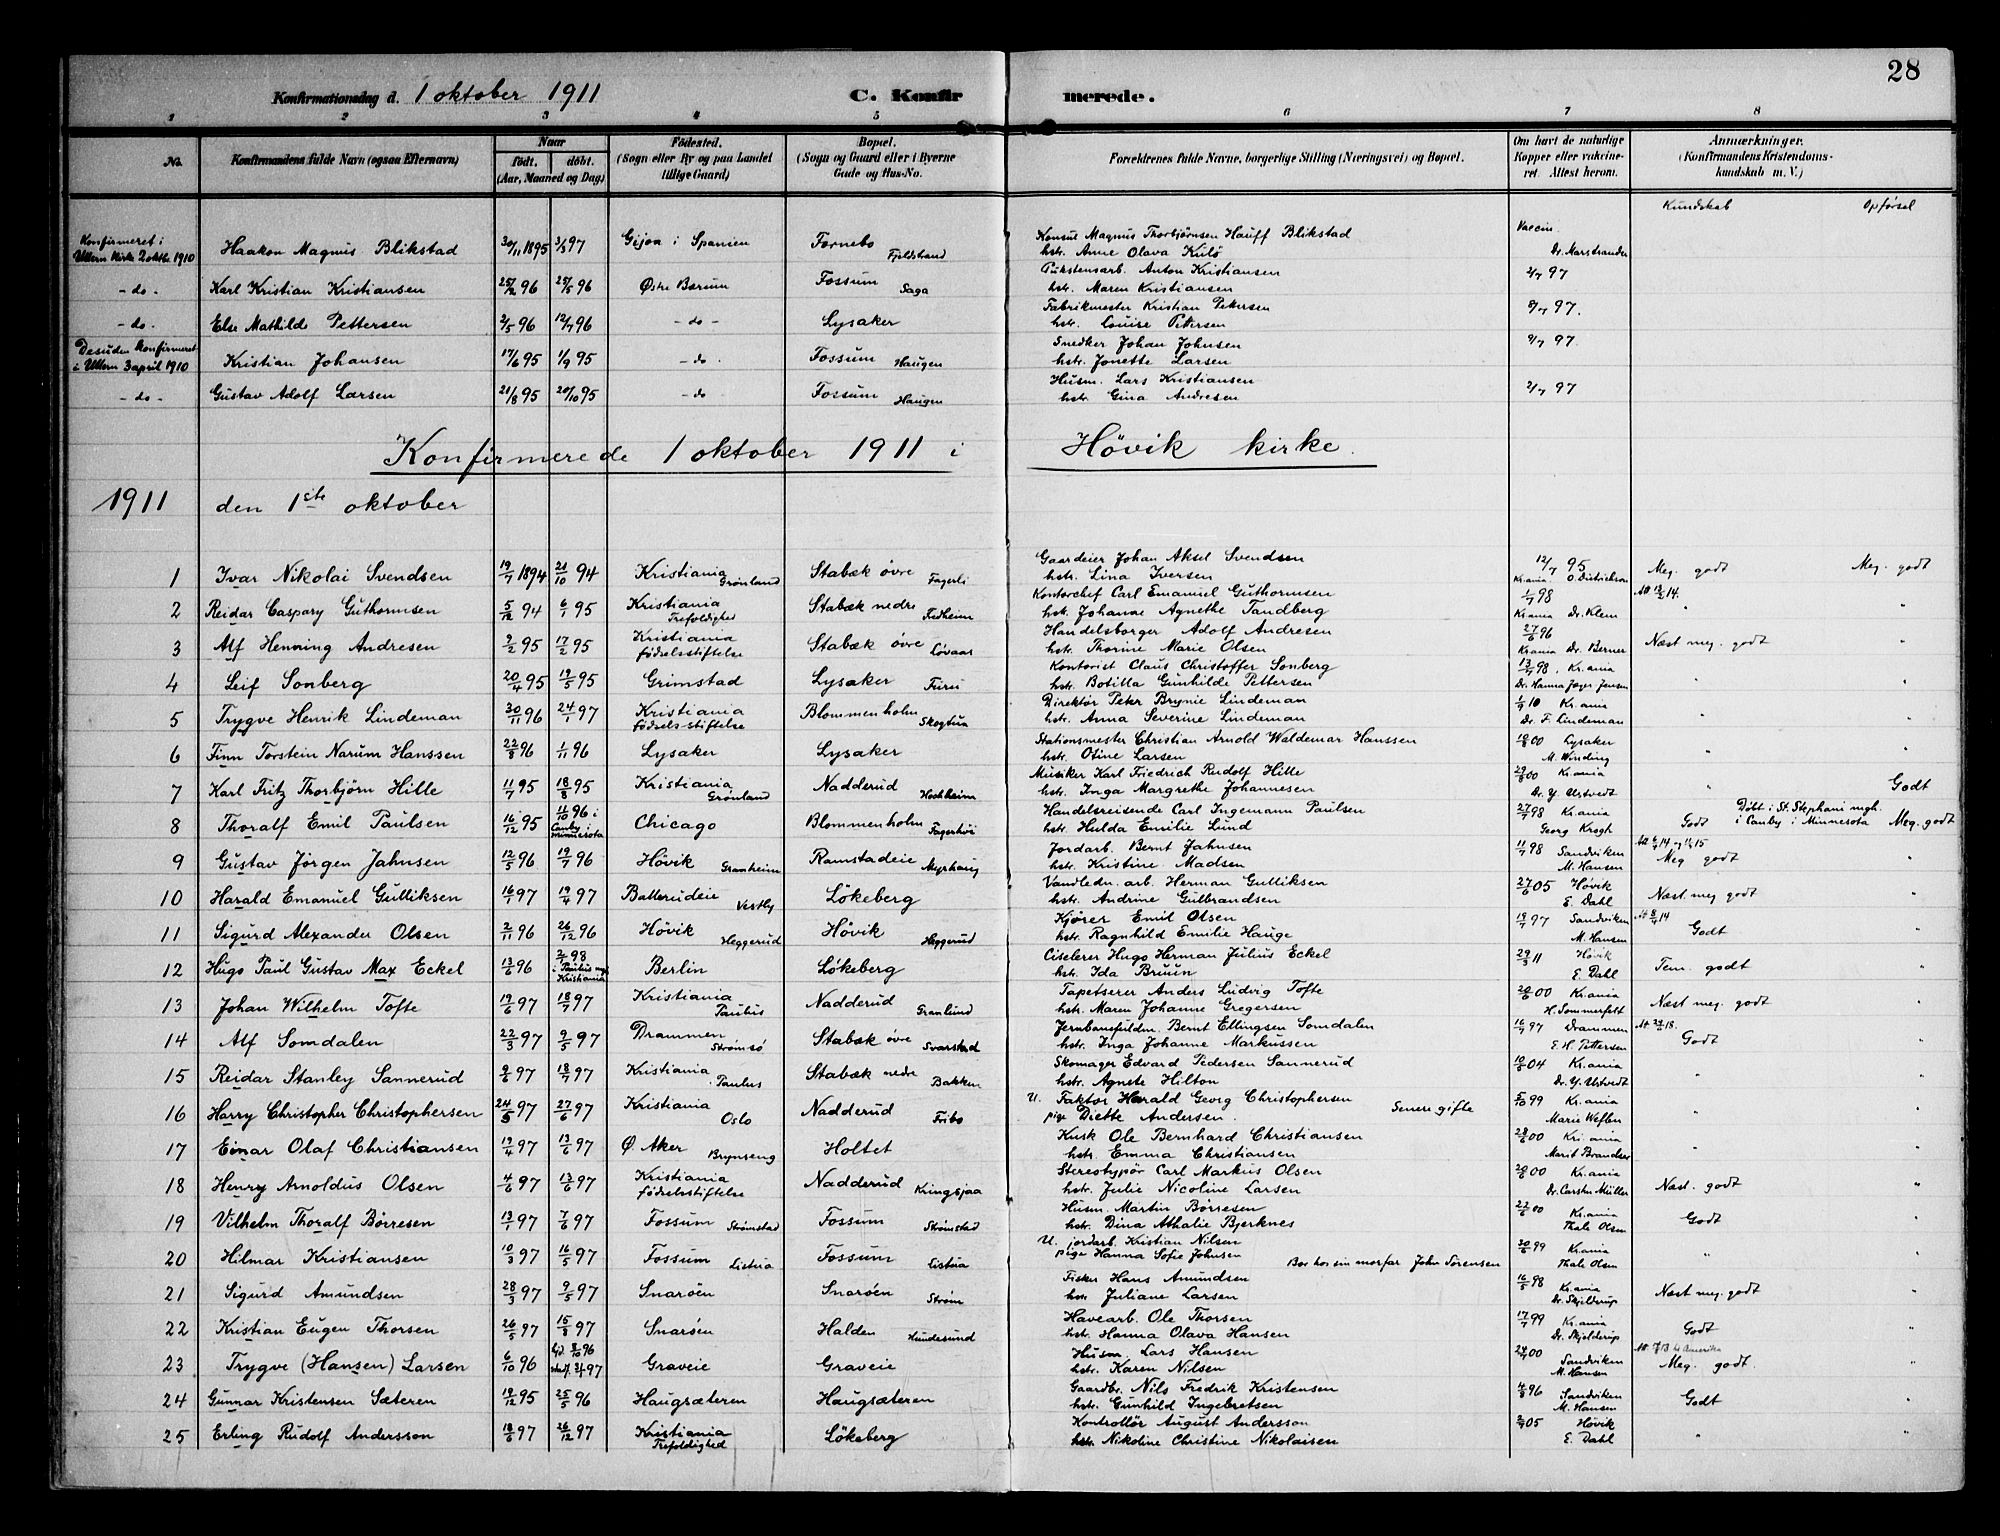 28
Konfirmationsdag d. 1 oktober 1911 C. Konfirmerede.
1 2 3 4 5 6 7 8
No. Konfirmandens fulde Navn (ogsaa Efternavn) Naar født. døbt. (Aar, Maaned og Dag) Fødested. (Sogn eller By og paa Landet tillige Gaard) Bopæl. (Sogn og Gaard eller i Byerne Gade og Hus-No. Forældrenes fulde Navne, borgerlige Stilling (Næringsvei) og Bopæl. Om havt de naturlige Kopper eller vakcineret. Attest herom. Anmærkninger. (Konfirmandens Kristendomskundskab m. V.)
Kundskab Opførsel
Konfirmeret i Ullern Kirke 2 oktbr 1910 Haakon Magnus Blikstad 30/11 1895 3/3 97 Gijon i Spanien Fornebo Fjeldstrand Konsul Magnus Thorbjørnsen Hauff Blikstad Vaccin.
hstr. Anne Olava Kulö Dr. Marstrander
- do - Karl Kristian Kristiansen 25/2 96 25/5 96 Østre Bærum Fossum Saga Pukstensarb. Anton Kristiansen 2/7 97
hstr. Maren Kristiansen
- do - Else Mathilde Pettersen 2/5 96 12/7 96 - do - Lysaker Fabrikmester Kristian Pettersen 8/7 97.
hstr. Louise Pettersen
Desuden konfirmeret i Ullern 3 april 1910 Kristian Johansen 17/6 95 1/9 95 - do - Fossum Haugen Snedker Johan Johnsen 9/7 97
hstr. Jonette Larsen
- do - Gustav Adolf Larsen 21/8 95 20/10 95 - do Fossum Haugen Husm. Lars Kristiansen 2/7 97
hstr. Gina Andresen
Konfirmerede 1 oktober 1911 i Hövik kirke.
1911 den 1ste oktober
1 Ivar Nikolai Svendsen 19/7 1894 21/10 94 Kristiania Grønland Stabæk øvre Fagerli Gaardeier Johan Aksel Svendsen 12/7 95 Meg. godt Meg. godt
hstr. Lina Iversen Kr.ania O. Dietrichson
2 Reidar Caspary Guthormsen 5/12 94 6/1 95 Kristiania Trefoldighed Stabæk nedre Fredheim Kontorchef Carl Emanuel Guthormsen 1/7 98 Att 13/2 14. " "
hstr. Johanne Agnethe Tandberg Kr.ania Dr. Klem
3 Alf Henning Andresen 2/2 95 17/2 95 Kristiania fødselsstiftelse Stabæk øvre Lövaas Handelsborger Adolf Andresen 27/6 96 Næst meg. godt "
hstr. Thorine Marie Olsen Kr.ania Dr. Berner
4 Leif Sonberg 20/4 95 19/5 95 Grimstad Lysaker Furu Kontorist Claus Christoffer Sonberg 13/7 98. Kr.ania " "
hstr. Botilla Gunhilde Pettersen Dr. Hanna Jæger Jensen
5 Trygve Henrik Lindeman 30/11 96 24/1 97 Kristiania Fødselsstiftelse Blommenholm Skogtun Direktør Peter Brynie Lindeman 1/7 10 Kr.ania " "
hstr. Anna Severine Lindeman Dr. F. Lindeman
6 Finn Torstein Narum Hanssen 22/8 96 1/11 96 Lysaker Lysaker Stationsmester Christian Arnold Waldemar Hanssen 18/8 00 Lysaker " "
hstr. Otine Larsen M. Winding
7 Karl Fritz Thorbjørn Hille 11/7 95 18/8 95 Kristiania Grønland Nadderud Hochheim Musiker Karl Friedrich Rudolf Hille 29/8 00 Kr.ania " Godt
hstr. Inga Margrethe Johannesen Dr. Y. Ustvedt
8 Thoralf Emil Paulsen 16/12 95 11/10 96 i Canby i Minnesota Chicago Blommenholm Fagerhöi Handelsreisende Carl Ingemann Paulsen 27/7 98 Kr.ania Godt Døbt i St. Stephani mgh. i Canby i Minnesota Meg. godt
hstr. Hulda Emilie Lund Georg Krogh
9 Gustav Jörgen Jahnsen 12/5 96 19/7 96 Hövik Granheim Ramstadeie Myrhaug Jordarb. Bernt Jahnsen 11/7 98 Sandviken Meg godt "
hstr. Kristine Madsen M. Hansen
10 Harald Emanuel Gulliksen 16/1 97 19/4 97 Ballerudeie Vestby Lökeberg Vandledn. arb. Herman Gulliksen 27/6 05 Hövik Næst meg godt "
hstr. Andrine Gulbrandsen E. Dahl
11 Sigurd Alexander Olsen 2/11 96 26/12 96 Hövik Heggerud Hövik Heggerud Kjører Emil Olsen 19/7 97 Sandviken Godt "
hstr. Ragnhild Emilie Hauge M. Hansen
12 Hugo Paul Gustav Max Eckel 13/6 96 3/7 98 i Paulus mgh. Kristiania Berlin Lökeberg Ciselerer Hugo Herman Julius Eckel 29/3 11 Hövik Tem. godt "
hstr. Ida Bruun E. Dahl
13 Johan Wilhelm Tofte 19/6 97 18/7 97 Kristiania Paulus Nadderud Granlund Tapetserer Anders Ludvig Tofte 20/6 00 Kr.ania Næst meg. godt "
hstr. Maren Johanne Gregersen H. Sommerfelt
14 Alf Somdalen 22/3 97 9/5 97 Drammen Strømsø Stabæk øvre Svarstad Jernbanefuldm. Bernt Ellingsen Somdalen 16/7 97 Drammen Godt "
hstr. Inga Johanne Markussen E. H. Pettersen
15 Reidar Stanley Sannerud 9/6 97 18/7 97 Kristiania Paulus Stabæk nedre Bakken Skomager Edvard Pedersen Sannerud 10/8 04 Kr.ania " "
hstr. Agnete Hilton Dr. Y. Ustvedt
16 Harry Christopher Christophersen 24/5 97 27/6 97 Kristiania Oslo Nadderud Fribo U. Faktor Harald Georg Christophersen Senere gifte 5/10 99 Kr.ania " "
pige Diette Andersen. Marie Weflen
17 Einar Olaf Christiansen 19/4 97 13/6 97 Ø. Aker Brynseng Holtet Kusk Ole Bernhard Christiansen 28/6 00 Kr.ania " "
hstr. Emma Christiansen Marit Brandser
18 Henry Arnoldus Olsen 4/6 97 13/6 97 Kristiania fødselsstiftelse Nadderud Kringsjaa Stereotypör Carl Markus Olsen 20/8 00 Kr.ania Næst. godt "
hstr. Julie Nicoline Larsen Dr. Carsten Müller
19 Vilhelm Thoralf Börresen 13/1 97 7/6 97 Fossum Strømstad Fossum Strømstad Husm. Martin Börresen 22/6 00 Kr.ania Godt "
hstr. Dina Athalie Bjerknes Thale Olsen
20 Hilmar Kristiansen 10/3 97 16/5 97 Fossum Listua Fossum Listua U. jordarb. Kristian Nilsen 30/6 99 Kr.ania " "
pige Hanna Sofie Johnsen Bor hos sin morfar John Sörensen Thale Olsen
21 Sigurd Amundsen 28/3 97 9/5 97 Snarøen Snarøen Strøm Fisker Hans Amundsen 16/5 98 Kr.ania Næst meg. godt "
hstr. Juliane Larsen Dr. Skjelderup
22 Kristian Eugen Thorsen 26/5 97 15/8 97 Snarøen Halden Hundesund Havearb. Ole Thorsen 17/7 99 Kr.ania Godt "
hstr. Hanna Olava Hansen Dr. Skjelderup
23 Trygve (Hansen) Larsen 6/10 96 Graveie Graveie Husm. Lars Hansen 24/7 00 Sandviken Meg. godt. "
hstr. Karen Nilsen M. Hansen
24 Gunnar Kristensen Sæteren 19/12 95 25/5 96 Haugsæteren Haugsæteren Gaardbr. Nils Fredrik Kristensen 4/8 96 Sandviken Godt "
hstr. Gunhild Ingebretsen M. Hansen
25 Erling Rudolf Andersson 18/6 97 26/12 97 Kristiania Trefoldighed Lökeberg Kontrollör August Andersson 05 Hövik " "
hstr. Nikoline Christine Nikolaisen E. Dahl